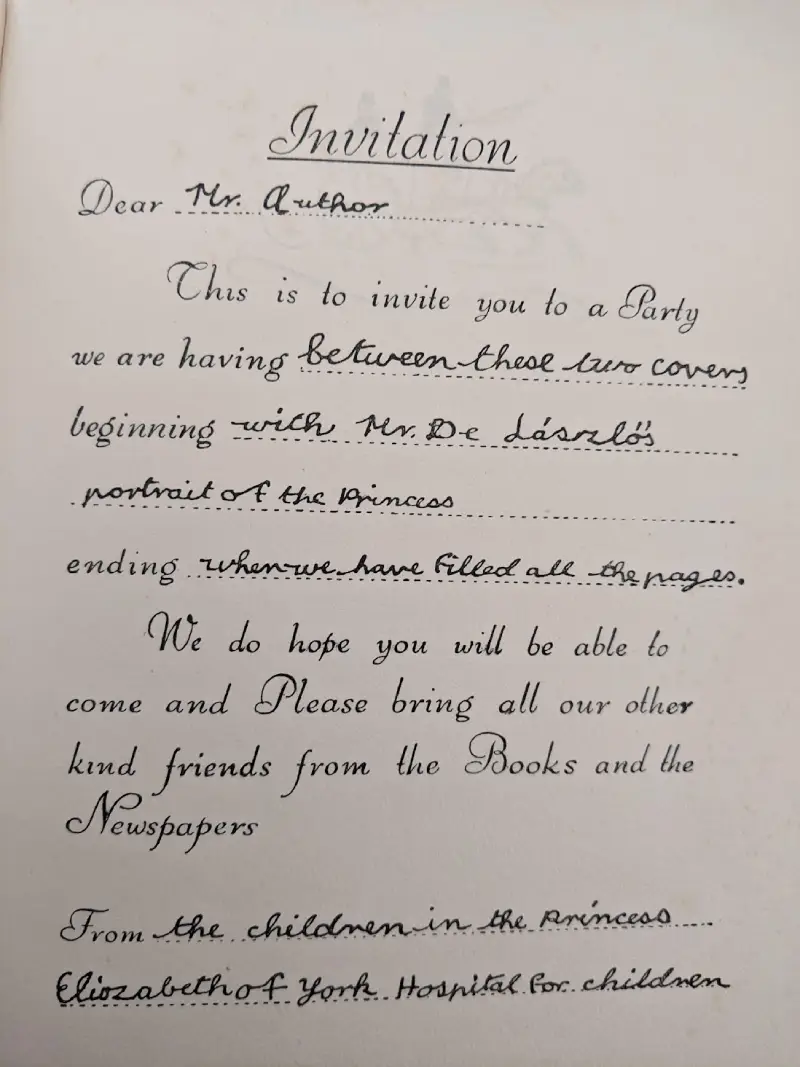 Invitation
Dear Mr. Author
This is to invite you to a Party
we are having between these two covers
beginning with Mr. De László's
portrait of the Princess
ending when we have filled all the pages.
We do hope you will be able to
come and Please bring all our other
kind friends from the Books and the
Newspapers
From the children in the Princess
Eliozabeth of York Hospital for children